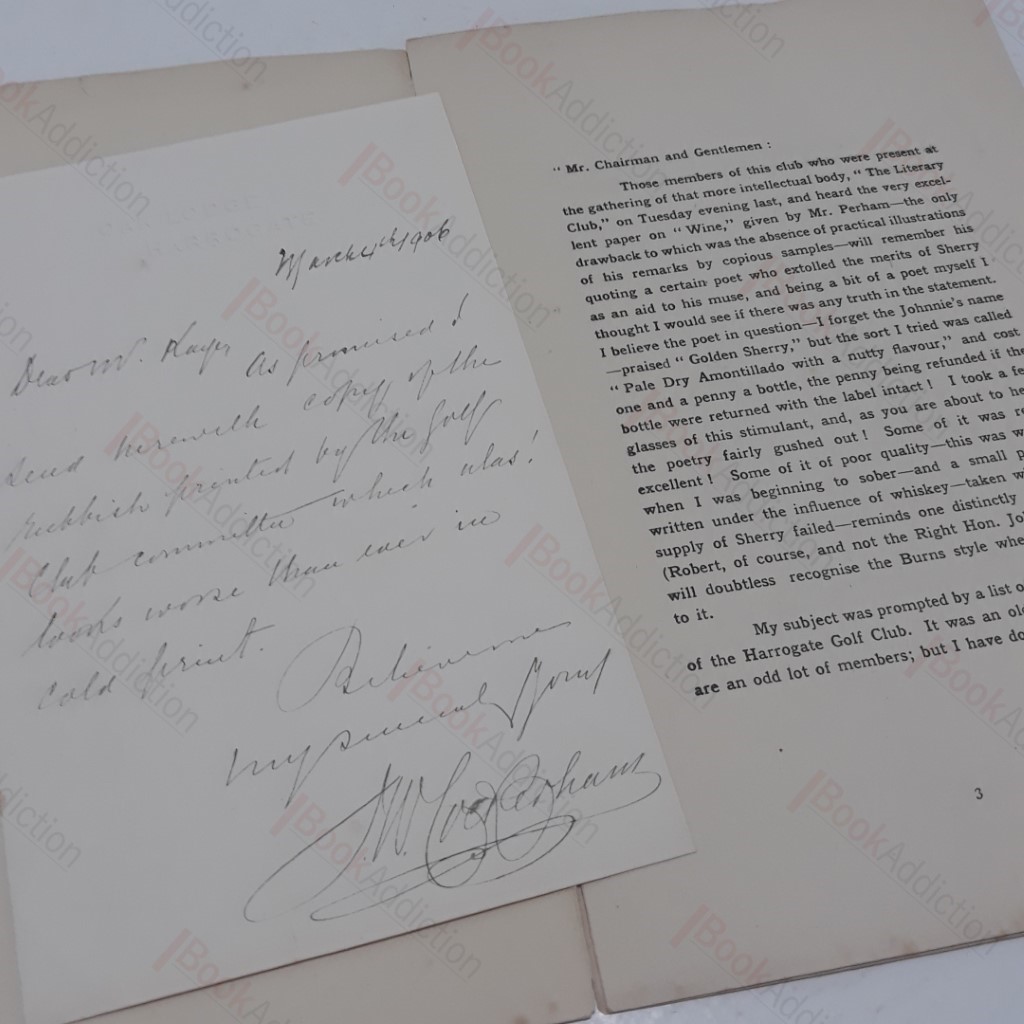 March 4th 1906
Dear Mr. Kaye
As promised I
send herewith copy of the
rubbish printed by the Golf
Club committee which alas!
looks worse than ever in
cold print.
Believe me
my sincerely Yours
J. W.
"Mr. Chairman and Gentlemen :
Those members of this club who were present at
the gathering of that more intellectual body, "The Literary
Club," on Tuesday evening last, and heard the very excel-
lent paper on "Wine," given by Mr. Perham—the only
drawback to which was the absence of practical illustrations
of his remarks by copious samples—will remember his
quoting a certain poet who extolled the merits of Sherry
as an aid to his muse, and being a bit of a poet myself I
thought I would see if there was any truth in the statement.
I believe the poet in question—I forget the Johnnie's name
—praised "Golden Sherry," but the sort I tried was called
"Pale Dry Amontillado with a nutty flavour," and cost
one and a penny a bottle, the penny being refunded if the
bottle were returned with the label intact! I took a fe
glasses of this stimulant, and, as you are about to he
the poetry fairly gushed out! Some of it was re
excellent! Some of it of poor quality—this was w
when I was beginning to sober—and a small p
written under the influence of whiskey—taken w
supply of Sherry failed—reminds one distinctly
(Robert, of course, and not the Right Hon. Jo
will doubtless recognise the Burns style whe
to it.
My subject was prompted by a list o
of the Harrogate Golf Club. It was an ol
are an odd lot of members; but I have do
3
BookAddiction